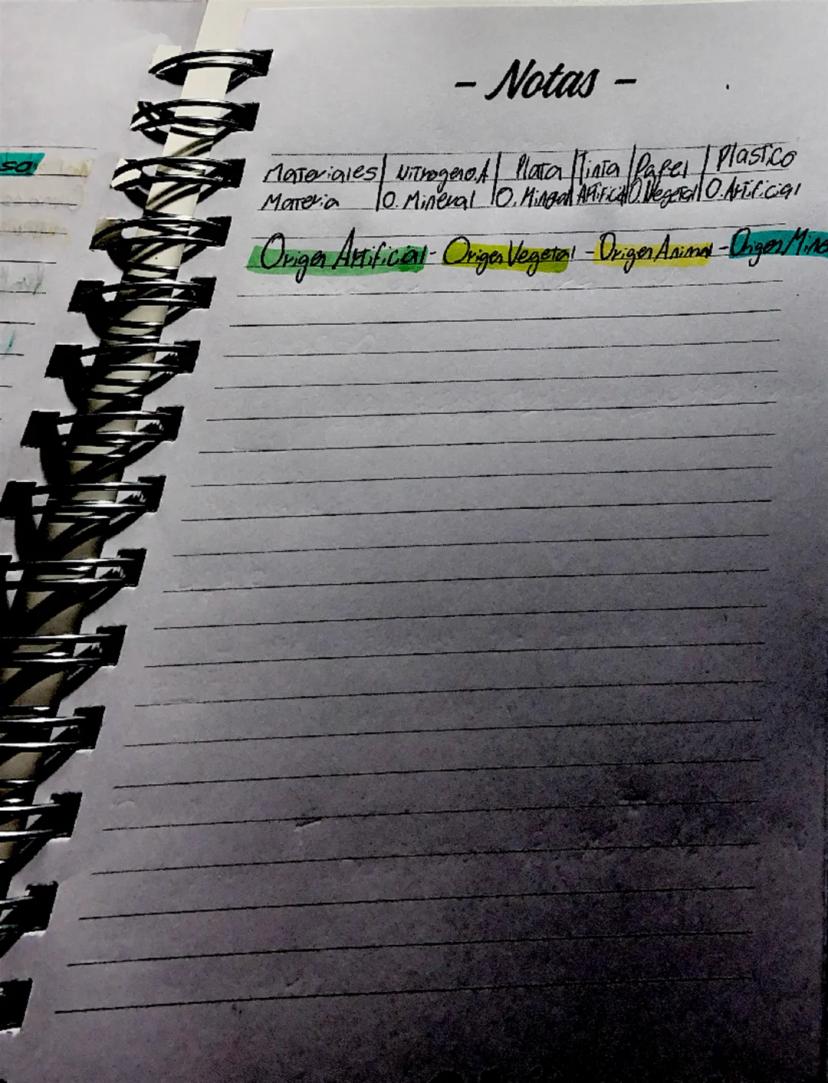 so
- Notas -
Materiales | Nitrogeno.A | Plata | Tinta | Papel | Plastico
Materia | O. Mineral | O. Mineral | Artificial | O. Vegetal | O. Artificial
Origen Artificial - Origen Vegetal - Origen Animal - Origen Mine